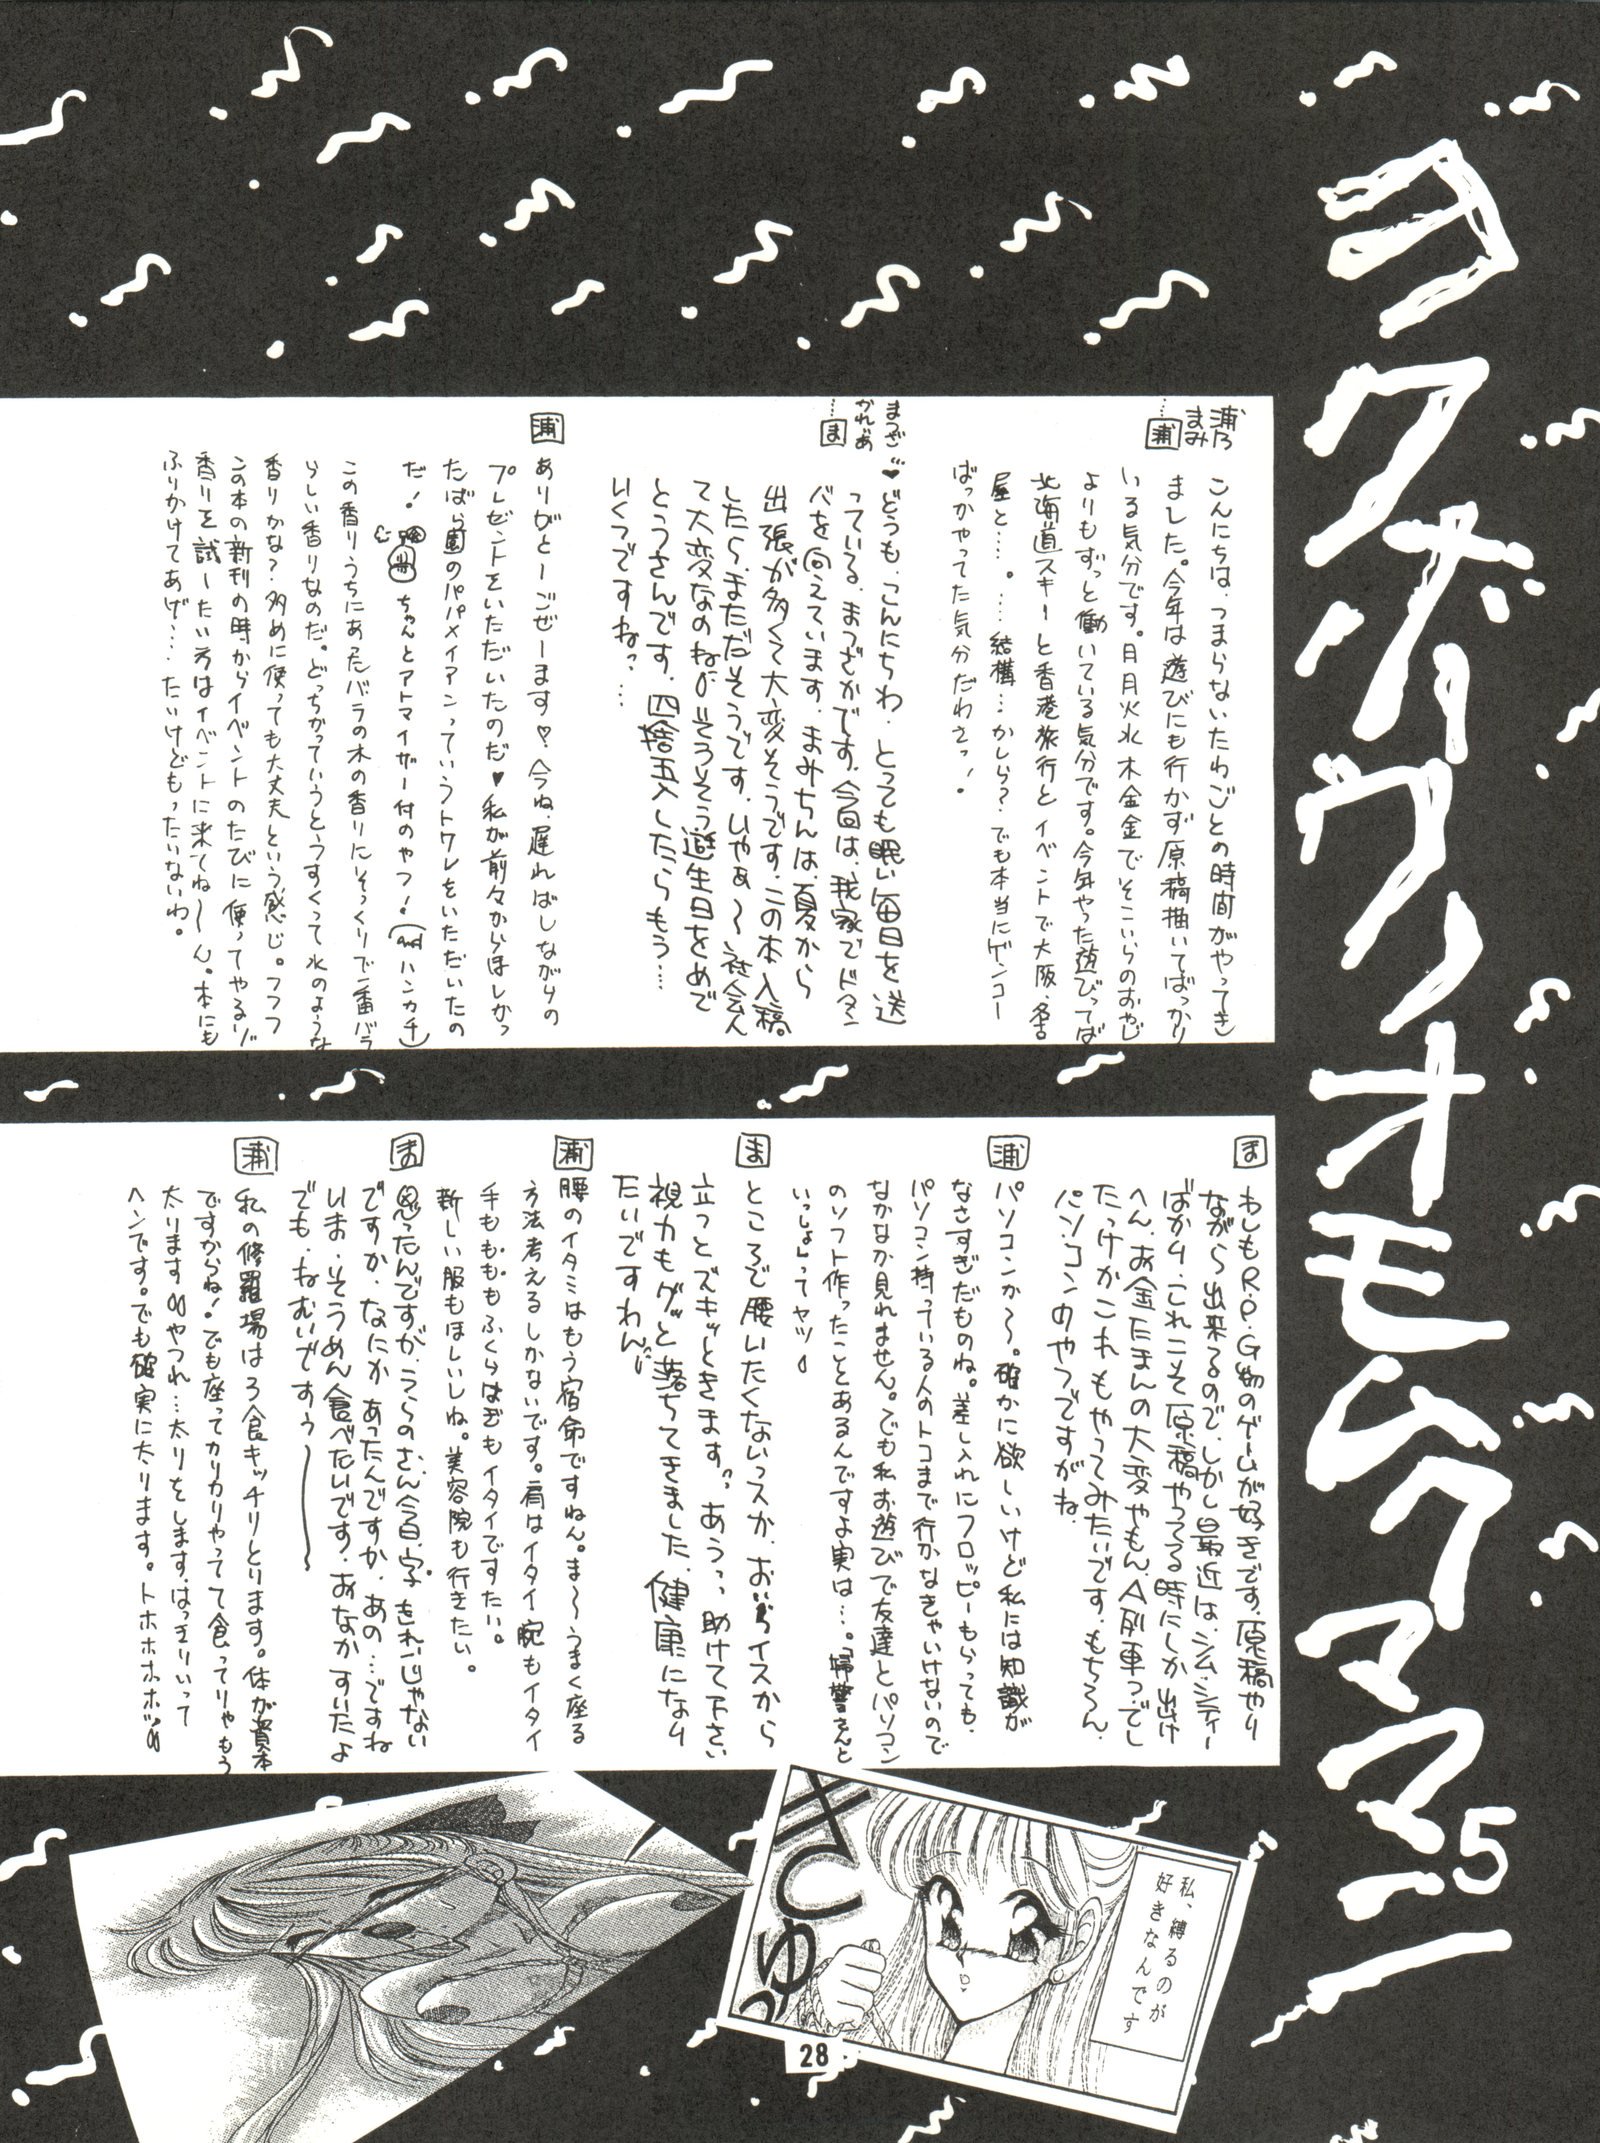 ヨクボーウリオモムクママ二5
浦乃まみ…浦
こんにちは、つまらないたわごとの時間がやってき
ました。今年は遊びにも行かず原稿描いてばっかり
いる気分です。月月火水木金金でそこいらのおやじ
よりもずっと働いている気分です。今年やった遊びってば
北海道スキーと香港旅行とイベントで大阪、名古
屋と…。…結構…かしら?でも本当にゲンコー
ばっかやってた気分だわさっ!
まつざかれいあ…ま
♥どうも、こんにちわ、とっても眠い毎日を送
っている、まつざかです。今回は、我家でドタン
バを向えています、まみちんは、夏から
出張が多くて大変そうです。この本入稿
したら、まただそうです。ひゃあ〜社会人
て大変なのね。そろそろう誕生日をめで
とうさんです。四捨五入したらもう…
いくつですねっ…
浦
ありがとーごぜーます♡。今ね、遅ればしながらの
プレゼントをいただいたのだ♥私が前々からほしかっ
たばら園のパパメイアンっていうトワレをいただいたの
だ!ちゃんとアトマイザー付のやつ!(andハンカチ)
この香りうちにあったバラの木の香りにそっくりで一番バラ
らしい香りなのだ。どっちかっていうとうすくって水のような
香りかな?多めに使っても大丈夫という感じ。フフフ
この本の新刊の時からイベントのたびに使ってやるゾ
香りを試したい方はイベントに来てね〜ん。本にも
ふりかけてあげ…たいけどもったいないわ。
ま
わしもR.P.G物のゲームが好きです、原稿やり
ながら出来るので、しかし最近は、シム・シティー
ばかり、これこそ原稿やってる時にしか出さけ
へん、お金たまんの大変やもん、A列車ってでし
たっけかこれもやってみたいです、もちろん、
パソコンのやつですがね。
浦
パソコンか〜。確かに欲しいけど私には知識が
なさすぎだものね。差し入れにフロッピーもらっても、
パソコン持っている人のトコまで行かなきゃいけないので
なかなか見れません。でも私お遊びで友達とパソコン
のソフト作ったことあるんですよ実は…。「婦警さんと
いっしょ」ってヤツ
ま
ところで腰いたくないっスか、おいらイスから
立つとズキッときます。あうっ、助けて下さい
視力もグッと落ちてきました、健康になり
たいですわん
浦
腰のイタミはもう宿命ですねん。ま〜うまく座る
方法考えるしかないです。肩はイタイ腕もイタイ
手もももももふくらはぎもイタイですたい。
新しい服もほしいしね。美容院も行きたい。
ま
思ったんですが、うらのさん今日、字、きれいじゃない
ですか、なにかあったんですか、あの…ですね
いま、そうめん食べたいです、おなかすいたよ
でも、ねむいですぅ〜
浦
私の修羅場は3食キッチリとります。体が資本
ですからね!でも座ってカリカリやってて食ってりゃもう
太りますやつれ…太りをします。はっきりいって
ヘンです。でも確実に太ります。トホホホホッ
きゅっ
私、縛るのが
好きなんです
28